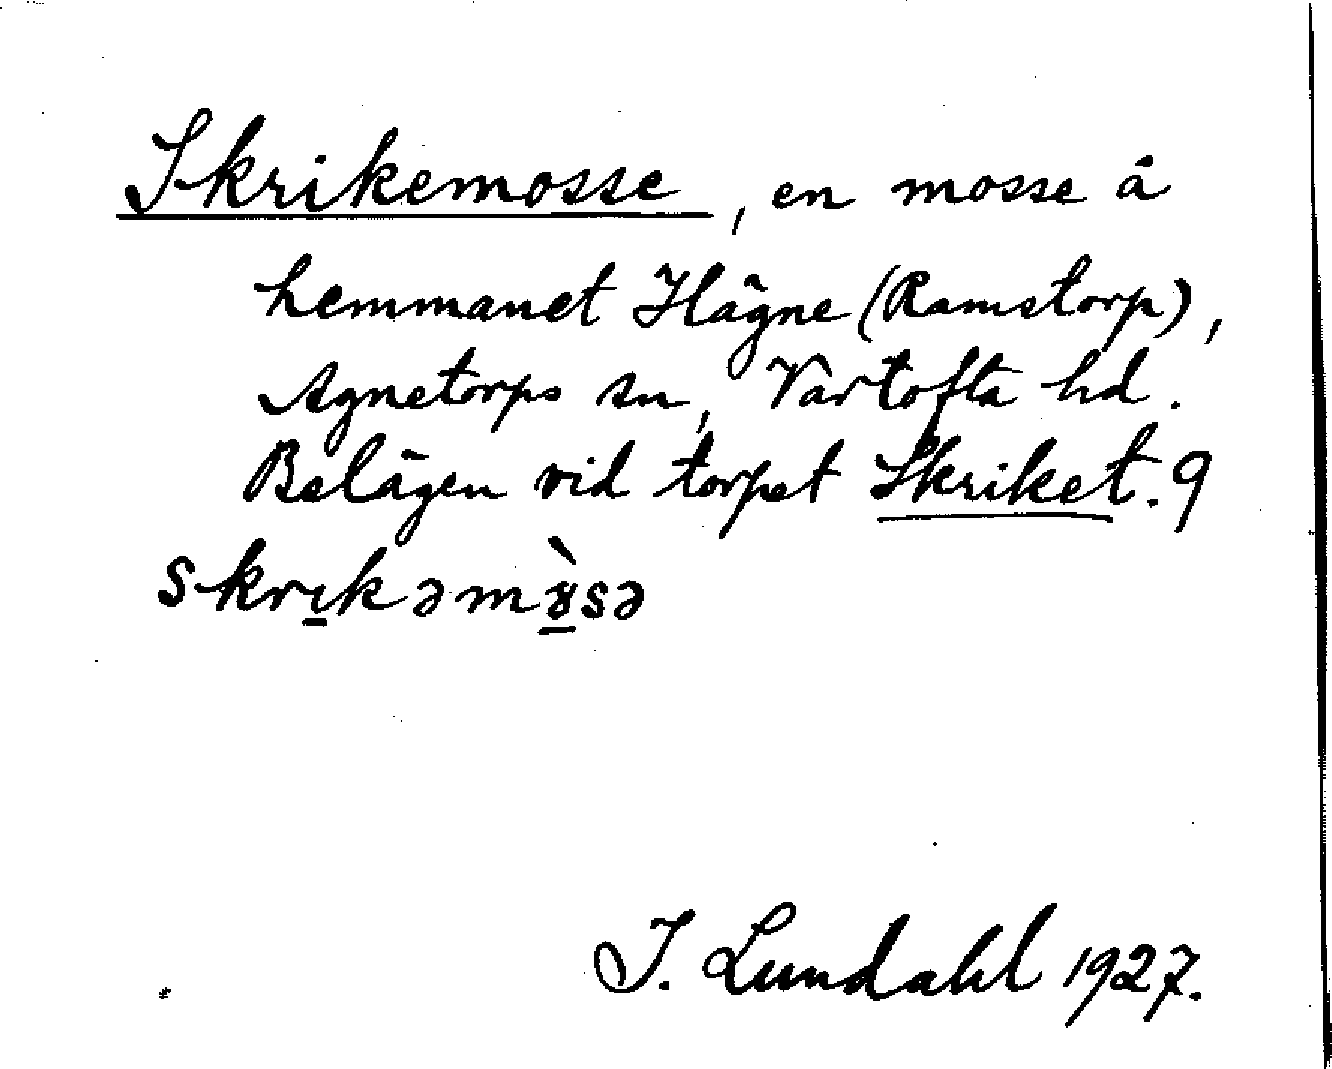 Skrikemosse, en mosse å
hemmanet Hägne (Ramstorp),
Agnetorps sn, Vartofta hd.
Belägen vid torpet Skriket. 9
skrı̲kəmɤ̲̀sə
I. Lundahl 1927.